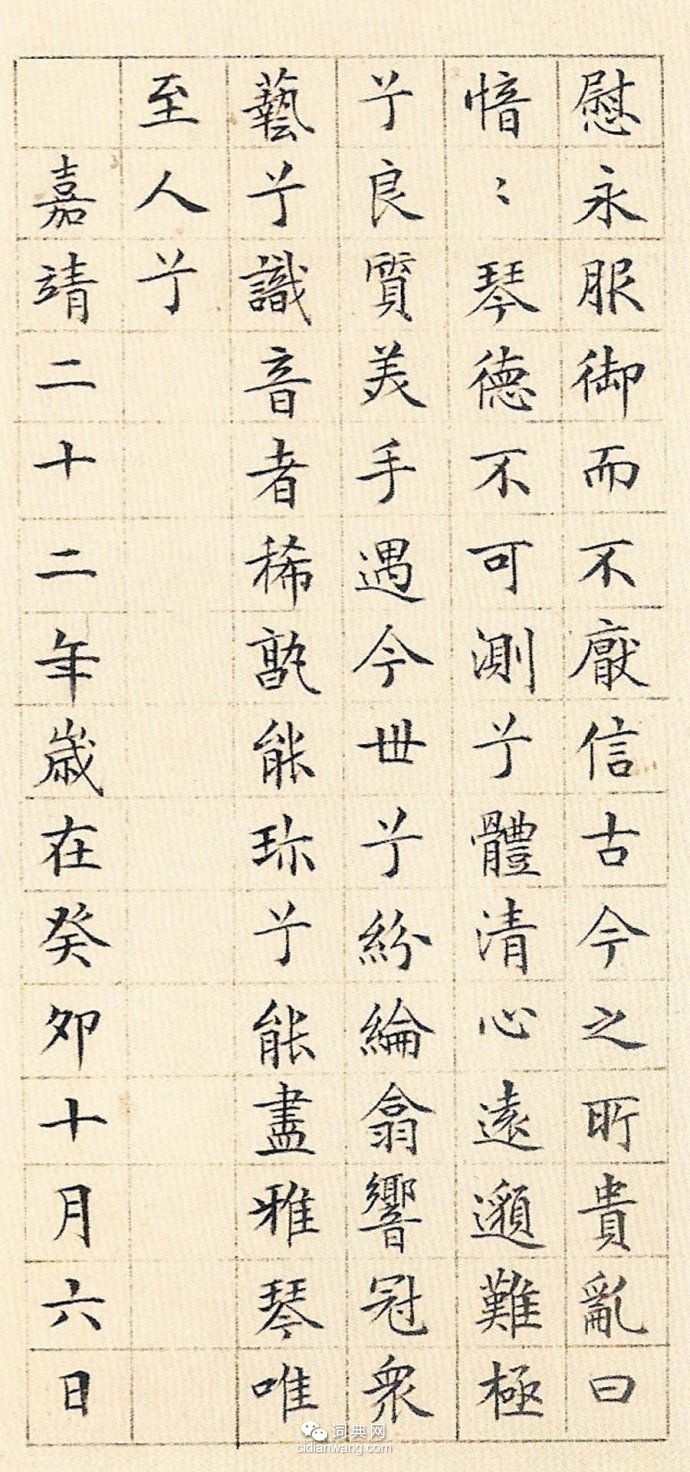 慰永服御而不厭信古今之所貴亂曰
愔〻琴德不可測兮體清心遠邈難極
兮良質美手遇今世兮紛綸翕響冠衆
藝兮識音者稀孰能珎兮能盡雅琴唯
至人兮
嘉靖二十二年歲在癸卯十月六日
词典网
cidianwang.com